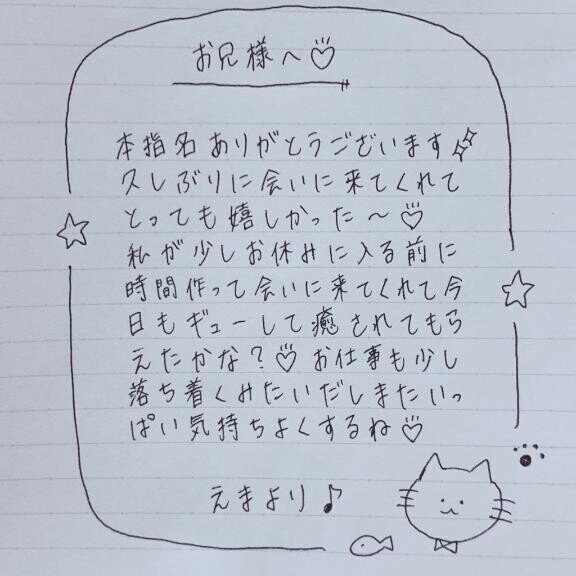 お兄様へ♡
本指名ありがとうございます✨
久しぶりに会いに来てくれて
とっても嬉しかった〜♡
私が少しお休みに入る前に
時間作って会いに来てくれて今
日もギューして癒されてもら
えたかな?♡お仕事も少し
落ち着くみたいだしまたいっ
ぱい気持ちよくするね♡
えまより♪